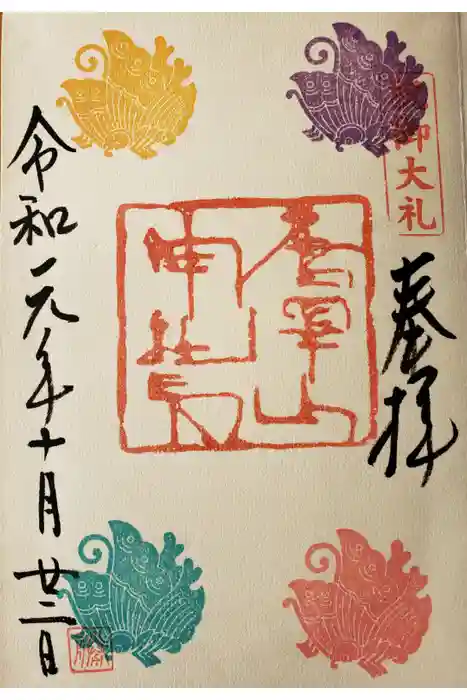 御大礼
奉拝
令和元年十月廿二日